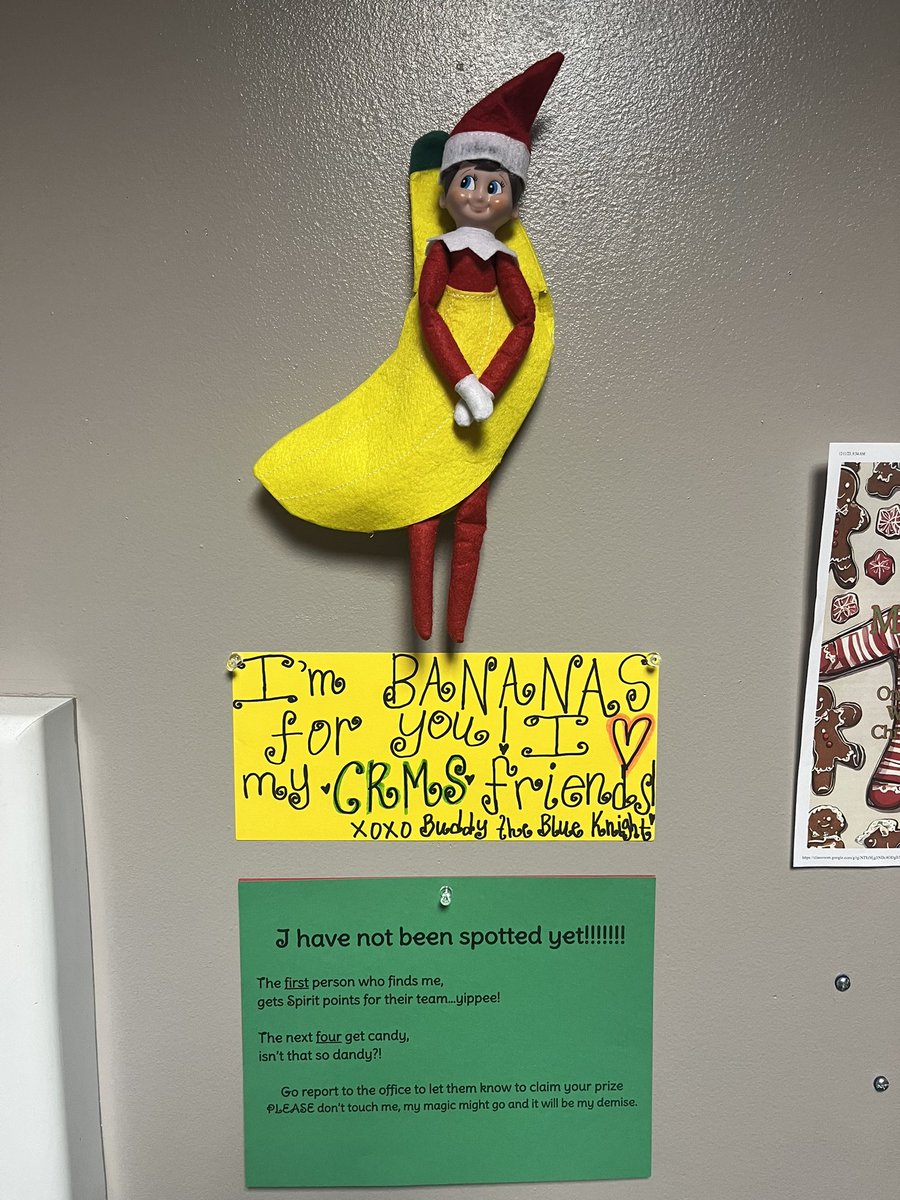 I'm BANANAS
for you! I
my CRMS friends!
xoxo Buddy the Blue Knight
I have not been spotted yet!!!!!!!
The first person who finds me,
gets Spirit points for their team...yippee!
The next four get candy,
isn't that so dandy?!
Go report to the office to let them know to claim your prize
PLEASE don't touch me, my magic might go and it will be my demise.